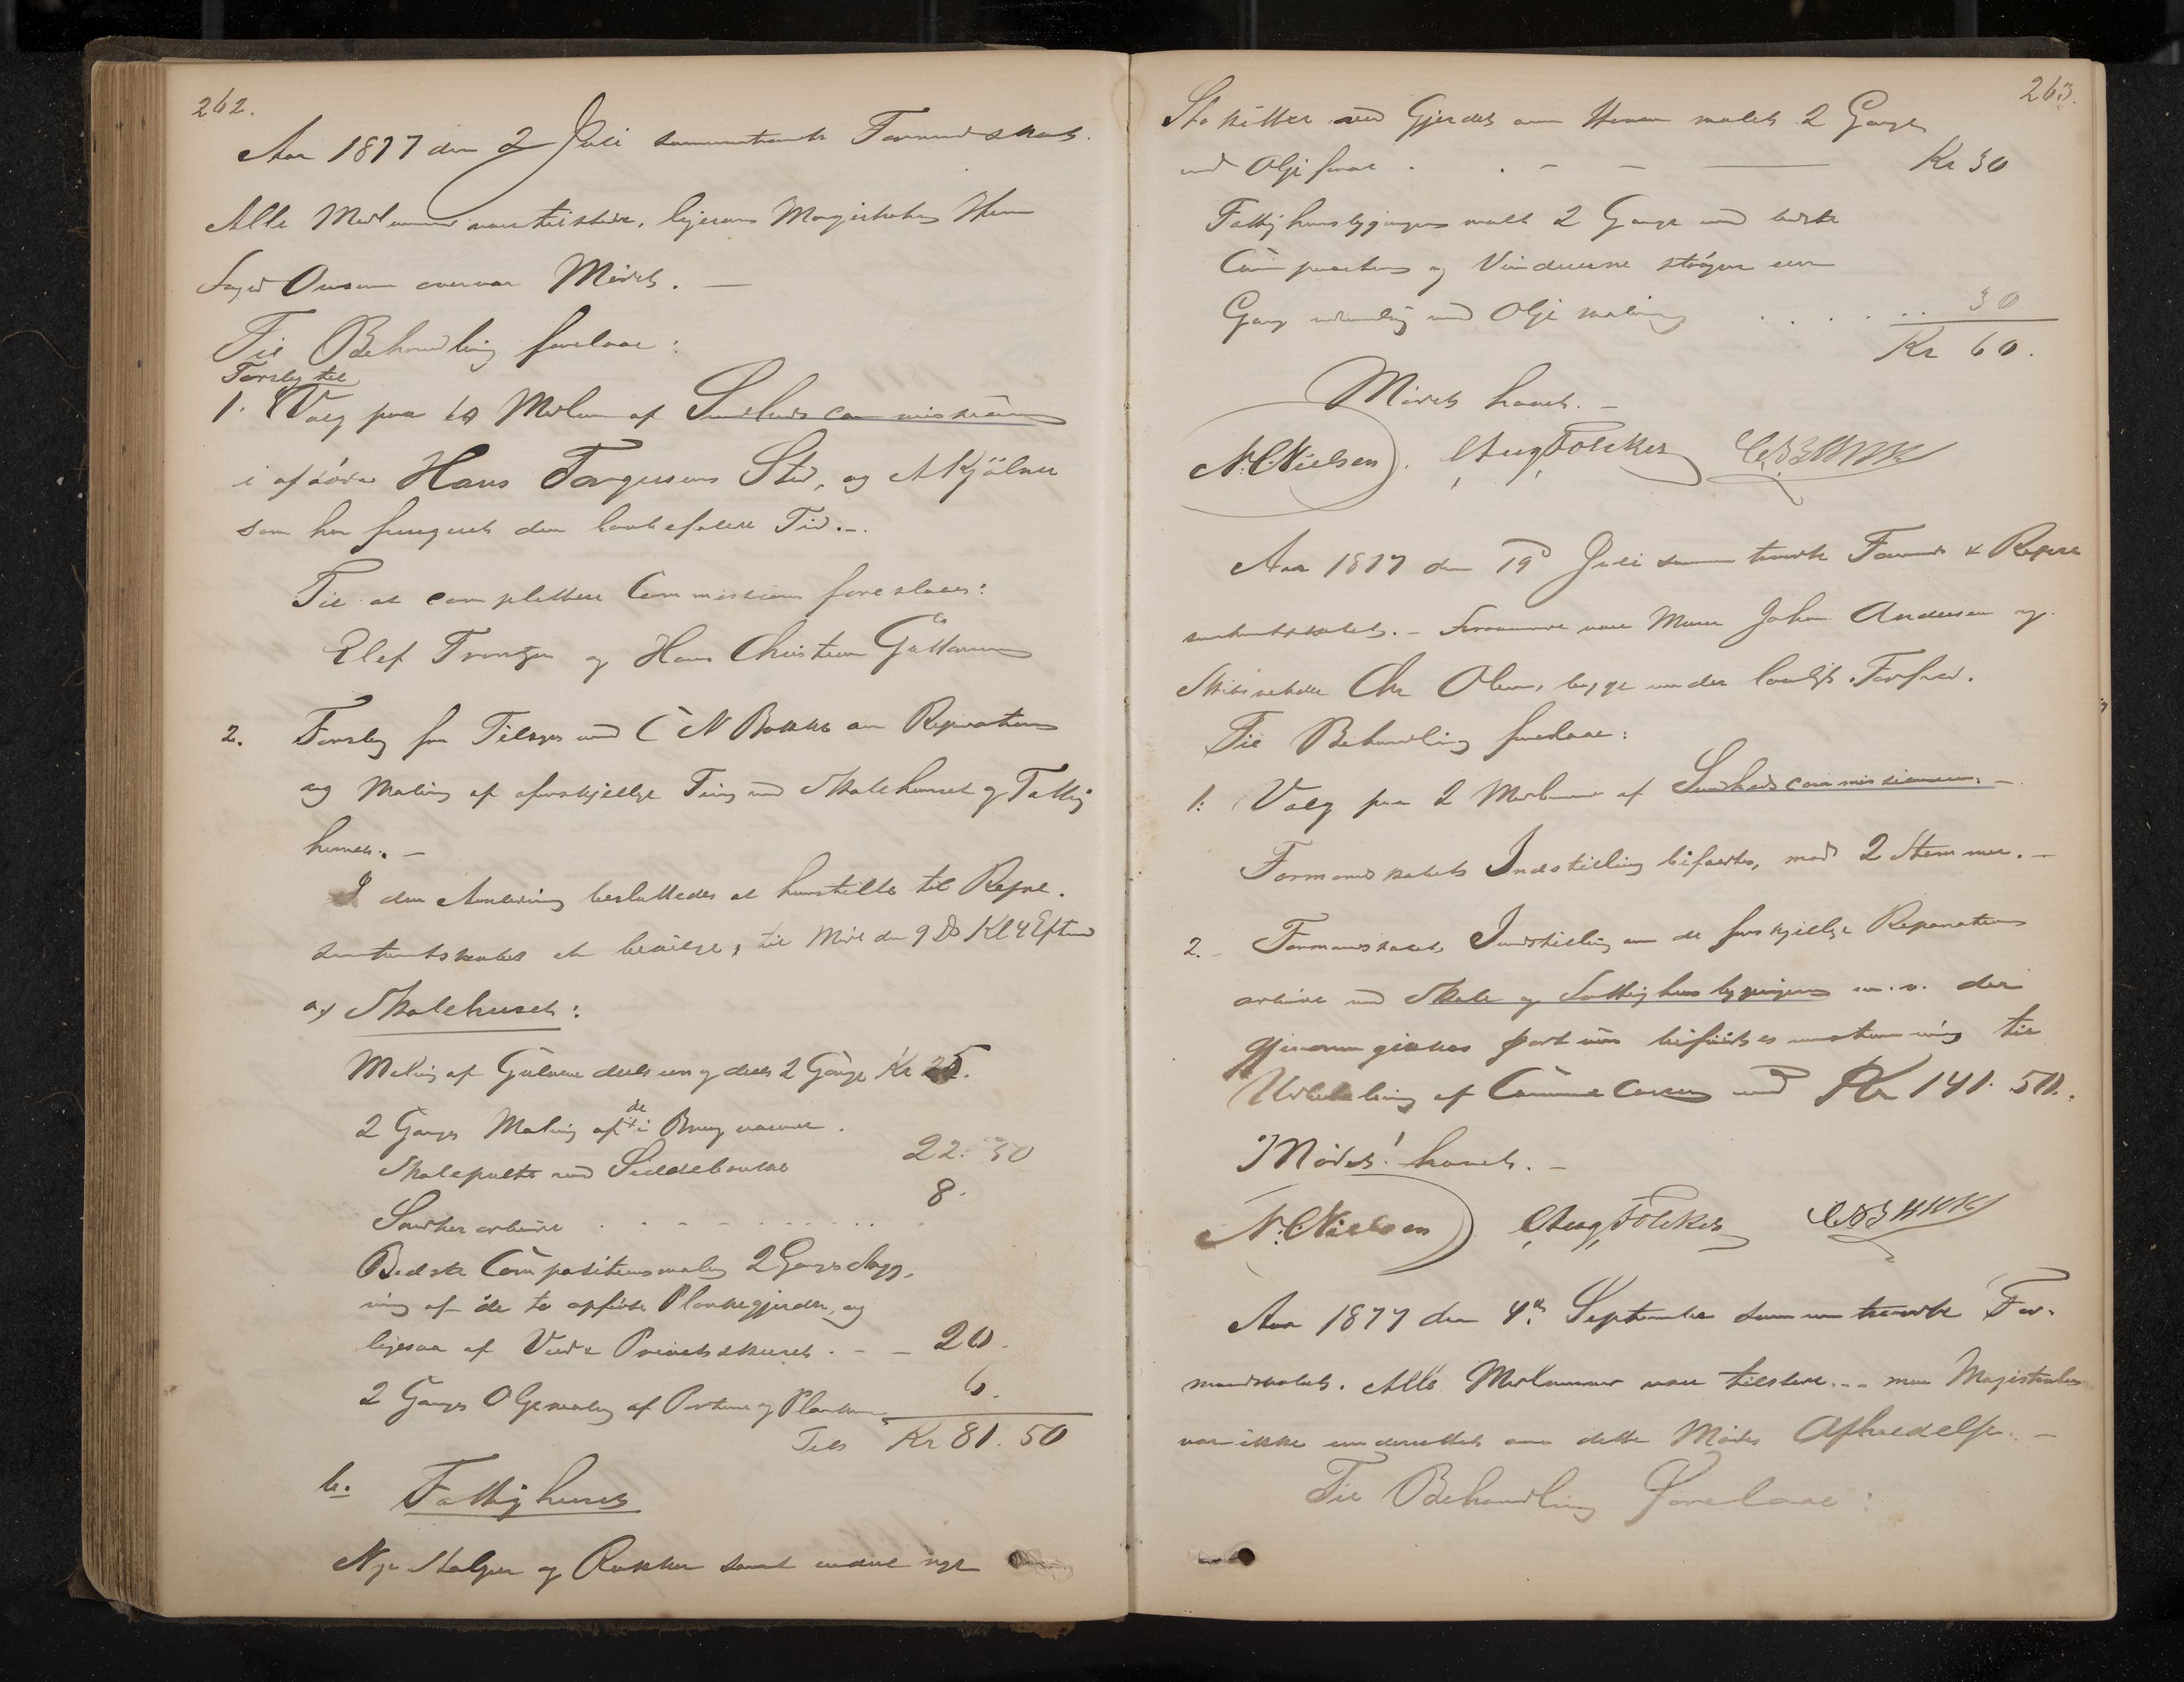 262.
Aar 1877 den 2 Juli sammentraadte Formandskabet.
Alle Medlemmer vare tilstede, ligesom Magistraten Herr
Foged overvar Mödet. —
Til Behandling forelaae:
Forslag til
1. Valg paa to Medlem af Sundhedscommissionen
i afdöde Hans Torgersens Sted, og A Kjölner
som har fungeret den lovbefalede Tid. –.
Til at complettere Commissionen foreslaaes:
Elef Trontzen og Hans Christian
2. Forslag fra Tilsyns C N Bakke om Reparation
og Maling af forskjellige Ting ved Skolehuset og Fattig
huset. —
I den Anledning besluttedes at henstille til Repræ-
sentantskabet at bevilge, til Möde den 9 Ds Kl 4 Efterm
a) Skolehuset:
Maling af Gulvene deels een og deels 2 Gange Kr 25.
2 Ganges Maling af de i Brug værende
Skolepulte med Siddebænke 22. 50
Snedker arbeide . . . . . . . 8.
Bedste Compositionsmaling 2 Ganges Stryg-
ning af de to opförte Plankegjerder, og
ligesaa af Ved & Privetskuret. – – 20.
2 Ganges Oljemaling af Portene og Plankerne 6.
Tils Kr 81. 50
b. Fattighuset
Nye Stolper og Rækker samt endeel nye
263.
Stakitter ved Gjerdet om Haven malet 2 Gange
med Oljefarve . . – – — Kr 30
Fattighusbygningen malt 2 Gange med bedste
Composition og Vinduerne strögne een
Gang udvendig med Olje maling . . . . . . 30
Kr 60.
Mödet hævet. –
N. C. Nielsen. Aug Fölcker
Aar 1877 den 19 Juli sammentraadte Formand & Repræ
sentantskabet. – Fraværende vare Murer Johan Andersen og
Skibsreder Chr Olsen, begge under lovligt Forfald.
Til Behandling forelaae:
1: Valg paa 2 Medlemmer af Sundhedscommissionen. –
Formandskabets Indstilling bifaldtes, mod 2 Stemmer. –
2. – Formandskabets Indstilling om de forskjellige Reparations
arbeide ved Skole og Fattighusbygningen m. v. der
gjennemgikkes Post viis bifaldtes enstemmig til
Udbetaling af Communecassen med Kr 141. 50.
Mödet hævet. –
N. C. Nielsen Aug Fölcker
Aar 1877 den 4de September sammentraadte For-
mandskabet. Alle Medlemmer vare tilstede. – – men Magistraten
var ikke underrettet om dette Mödes Afholdelse. –
Til Behandling forelaae: